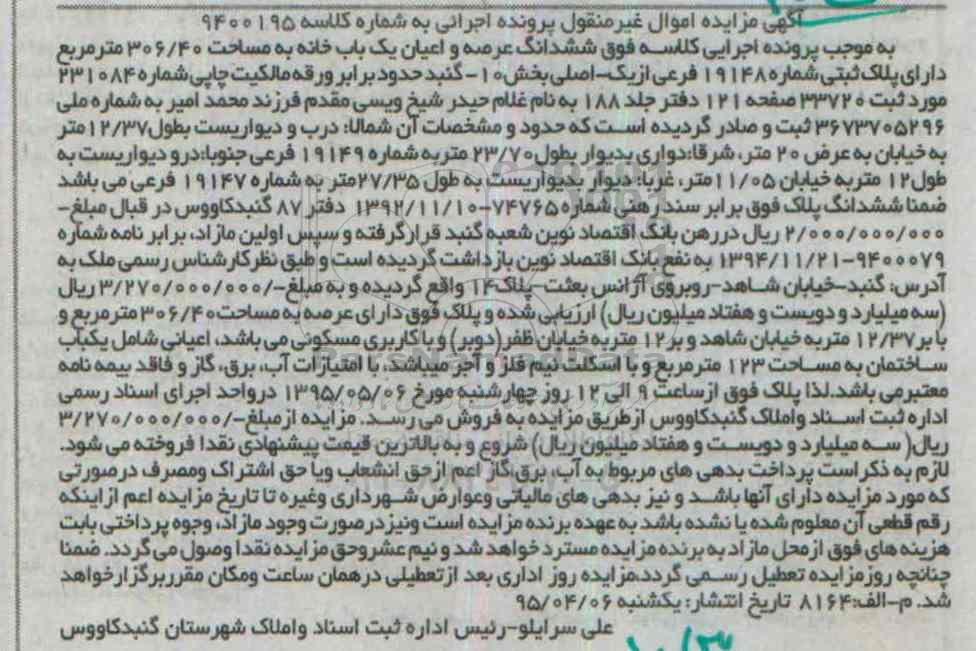 آگهی مزایده اموال غیرمنقول پرونده اجرائی به شماره کلاسه ۹۴۰۰۱۹۵
به موجب پرونده اجرایی کلاسه فوق ششدانگ عرصه و اعیان یک باب خانه به مساحت ۳۰۶/۴۰ مترمربع
دارای پلاک ثبتی شماره ۱۹۱۴۸ فرعی از یک-اصلی بخش ۱۰-گنبد حدود برابر ورقه مالکیت چاپی شماره ۲۳۱۰۸۴
مورد ثبت ۳۳۷۲۰ صفحه ۱۲۱ دفتر جلد ۱۸۸ به نام غلام حیدر شیخ ویسی مقدم فرزند محمد امیر به شماره ملی
۳۶۷۳۷۰۵۲۹۶ ثبت و صادر گردیده است که حدود و مشخصات آن شمالا: درب و دیواریست بطول ۱۲/۳۷ متر
به خیابان به عرض ۲۰ متر، شرقا: دواری بدیوار بطول ۲۳/۷۰ متر به شماره ۱۹۱۴۹ فرعی جنوبا: در و دیواریست به
طول ۱۲ متر به خیابان ۱۱/۰۵ متر، غربا: دیوار بدیواریست به طول ۲۷/۳۵ متر به شماره ۱۹۱۴۷ فرعی می باشد
ضمنا ششدانگ پلاک فوق برابر سند رهنی شماره ۷۴۷۶۵-۱۳۹۲/۱۱/۱۰ دفتر ۸۷ گنبدکاووس در قبال مبلغ-
۲/۰۰۰/۰۰۰/۰۰۰ ریال در رهن بانک اقتصاد نوین شعبه گنبد قرار گرفته و سپس اولین مازاد، برابر نامه شماره
۹۴۰۰۰۷۹-۱۳۹۴/۱۱/۲۱ به نفع بانک اقتصاد نوین بازداشت گردیده است و طبق نظر کارشناس رسمی ملک به
آدرس: گنبد-خیابان شاهد-روبروی آژانس بعثت-پلاک ۱۴ واقع گردیده و به مبلغ-/۳/۲۷۰/۰۰۰/۰۰۰ ریال
(سه میلیارد و دویست و هفتاد میلیون ریال) ارزیابی شده و پلاک فوق دارای عرصه به مساحت ۳۰۶/۴۰ مترمربع و
با بر ۱۲/۳۷ متر به خیابان شاهد و بر ۱۲ متر به خیابان ظفر (دوبر) و با کاربری مسکونی می باشد، اعیانی شامل یکباب
ساختمان به مساحت ۱۲۳ مترمربع و با اسکلت نیم فلز و آجر میباشد، با امتیازات آب، برق، گاز و فاقد بیمه نامه
معتبر می باشد. لذا پلاک فوق از ساعت ۹ الی ۱۲ روز چهارشنبه مورخ ۱۳۹۵/۰۵/۰۶ در واحد اجرای اسناد رسمی
اداره ثبت اسناد و املاک گنبدکاووس از طریق مزایده به فروش می رسد. مزایده از مبلغ-/۳/۲۷۰/۰۰۰/۰۰۰
ریال( سه میلیارد و دویست و هفتاد میلیون ریال) شروع و به بالاترین قیمت پیشنهادی نقدا فروخته می شود.
لازم به ذکر است پرداخت بدهی های مربوط به آب، برق گاز اعم از حق انشعاب ویا حق اشتراک ومصرف در صورتی
که مورد مزایده دارای آنها باشد و نیز بدهی های مالیاتی وعوارض شهرداری وغیره تا تاریخ مزایده اعم از اینکه
رقم قطعی آن معلوم شده یا نشده باشد به عهده برنده مزایده است ونیز در صورت وجود مازاد، وجوه پرداختی بابت
هزینه های فوق از محل مازاد به برنده مزایده مسترد خواهد شد و نیم عشر وحق مزایده نقدا وصول می گردد. ضمنا
چنانچه روز مزایده تعطیل رسمی گردد، مزایده روز اداری بعد از تعطیلی در همان ساعت ومکان مقرر برگزار خواهد
شد. م-الف: ۸۱۶۴ تاریخ انتشار: یکشنبه ۹۵/۰۴/۰۶
علی سرایلو-رئیس اداره ثبت اسناد واملاک شهرستان گنبدکاووس